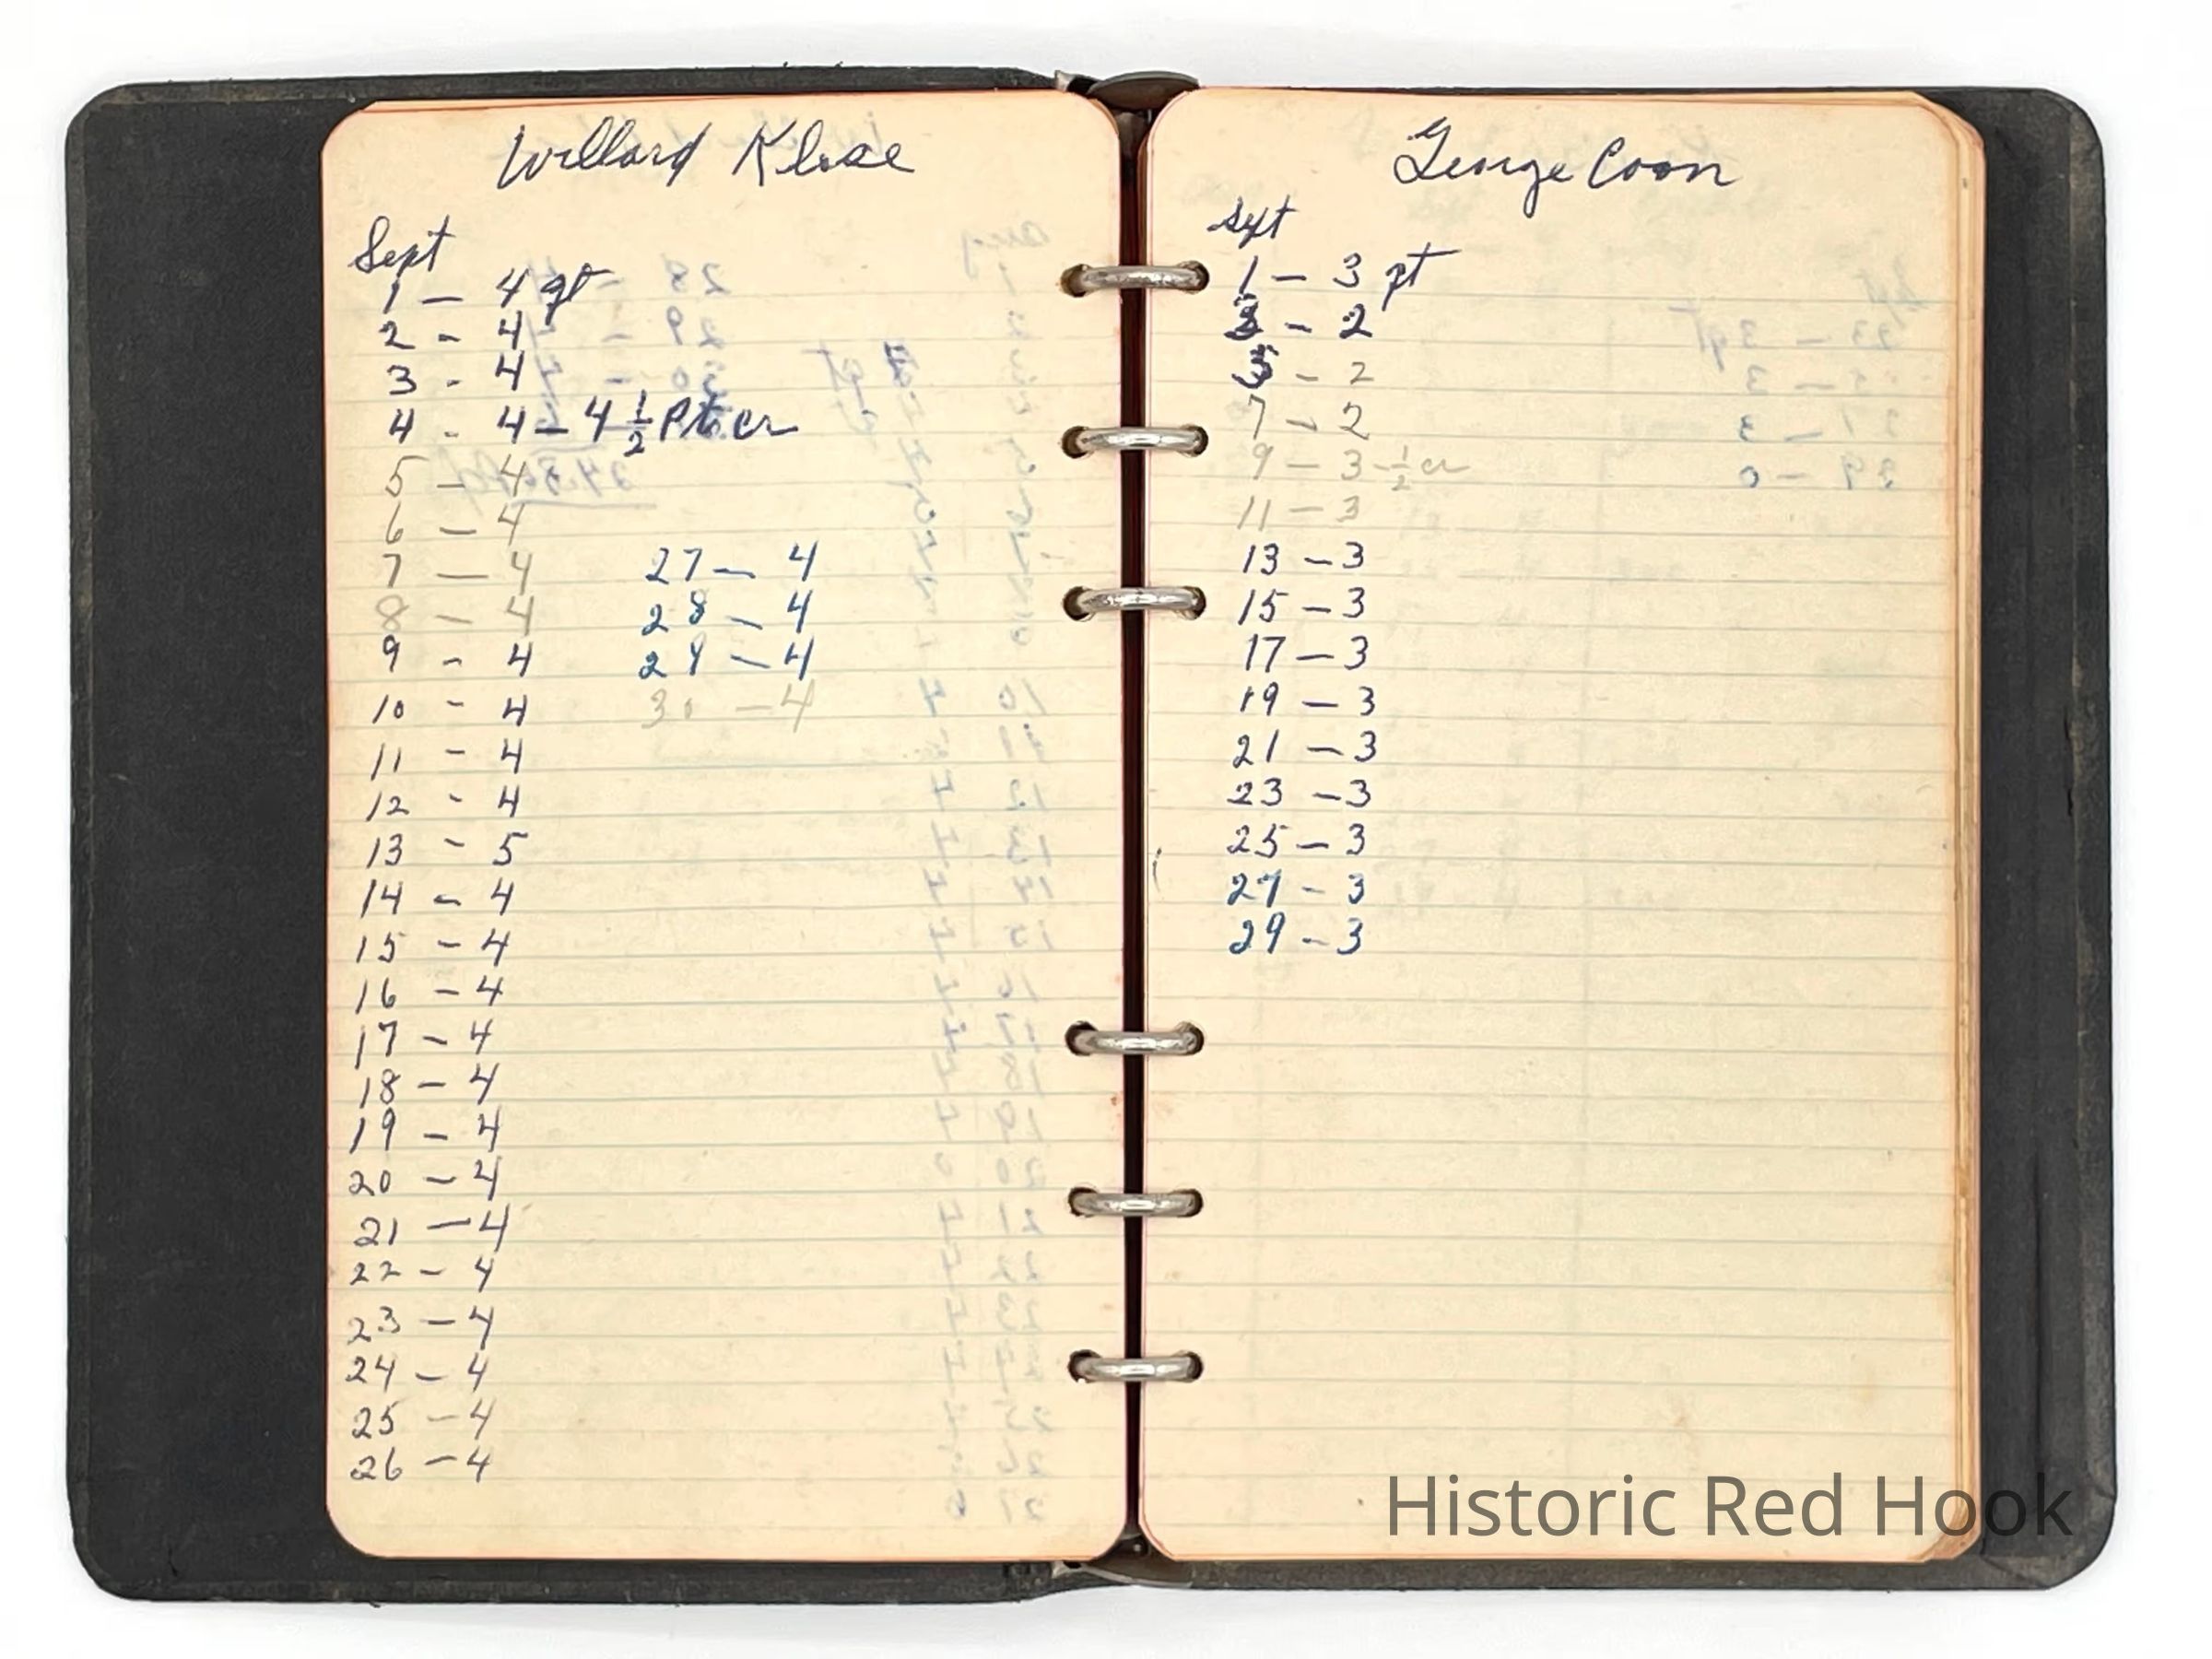 Willard Klose
Sept
1 - 4 qt
2 - 4
3 - 4
4 - 4 - 4 1/2 Pt cr
5 - 4
6 - 4
7 - 4
8 - 4
9 - 4
10 - 4
11 - 4
12 - 4
13 - 5
14 - 4
15 - 4
16 - 4
17 - 4
18 - 4
19 - 4
20 - 4
21 - 4
22 - 4
23 - 4
24 - 4
25 - 4
26 - 4
27 - 4
28 - 4
29 - 4
30 - 4
George Coon
Sept
1 - 3 pt
3 - 2
5 - 2
7 - 2
9 - 3 - 1/2 cr
11 - 3
13 - 3
15 - 3
17 - 3
19 - 3
21 - 3
23 - 3
25 - 3
27 - 3
29 - 3
Historic Red Hook